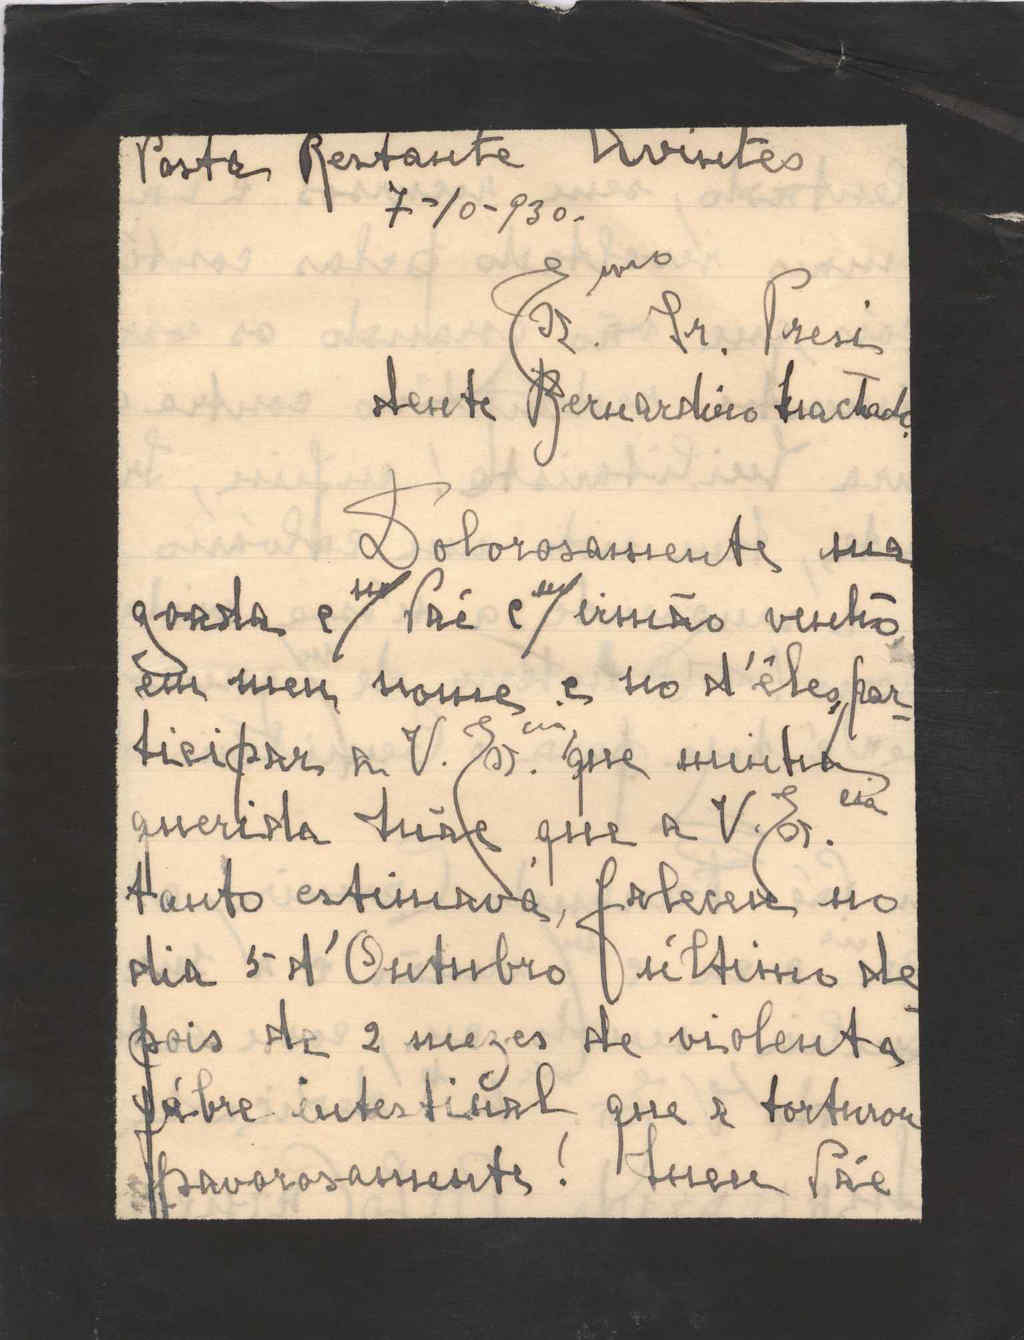 Posta Restante Avintes
7-10-930.
Exmo
Sr. Presi
dente Bernardino Machado.
Dolorosamente, ma
goada e m/ Páe e m/ irmão venho,
em meu nome e no d'êles, par-
ticipar a V. Ex.cia, que minha
querida Mãe que a V. Ex.cia
tanto estimava, faleceu no
dia 5 d'Outubro último de
pois de 2 mezes de violenta
fébre intestinal que a torturou
pavorosamente! Meu Páe